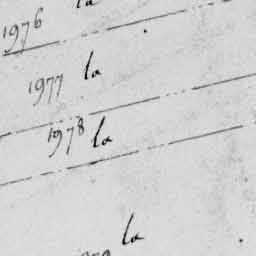 1976 la
1977 la
1978 la
la